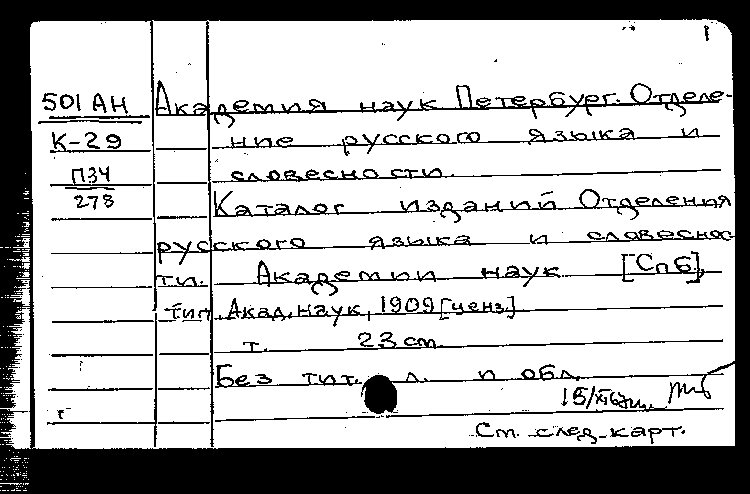 1
501 АН Академия наук Петербург. Отделе-
К-29 ние русского языка и
ПЗЧ словесности.
278 Каталог изданий Отделения
русского языка и словеснос-
ти. Академии наук [Спб],
тип. Акад. наук, 1909 [ценз.]
т. 23 см.
Без тит. л. и обл.
15/XI
См. след. карт.